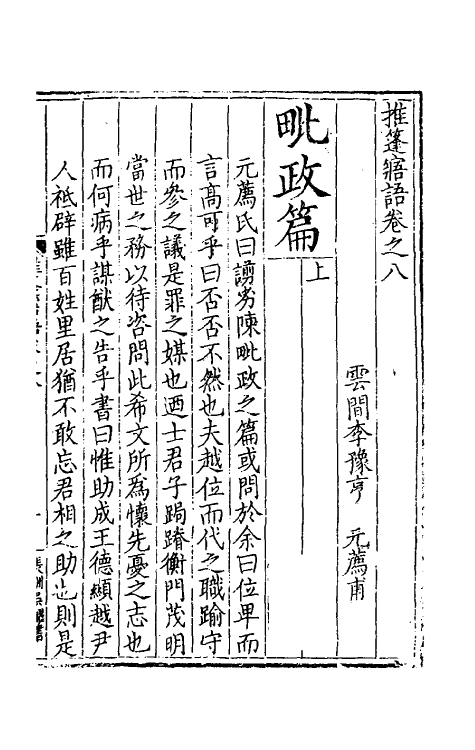 推篷寤語卷之八
雲間李豫亨　元薦甫
毗政篇　上
元薦氏曰謭劣陳毗政之篇或問於余曰位卑而
言高可乎曰否否不然也夫越位而代之職踰守
而參之議是罪之媒也迺士君子跼蹐衡門茂明
當世之務以待咨問此希文所爲懷先憂之志也
而何病乎謀猷之告乎書曰惟助成王德顯越尹
人祗辟雖百姓里居猶不敢忘君相之助也則是